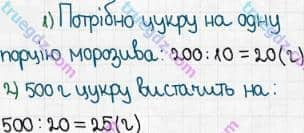 1) Потрібно цукру на одну
порцію морозива: 200:10=20(г)
2) 500г цукру вистачить на:
500:20=25(г)